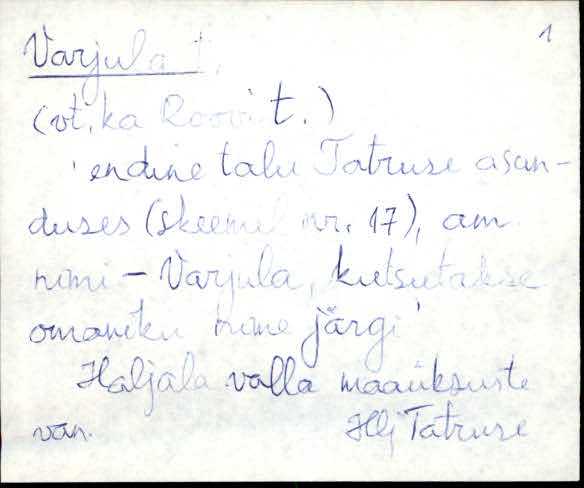 1
Varjula t.
(vt. ka Roovi t.)
'endine talu Tatruse asun-
duses (skeemil nr. 17), am.
nimi - Varjula, kutsutakse
omaniku nime järgi'
Haljala valla maaüksuste
van. Hlj Tatruse